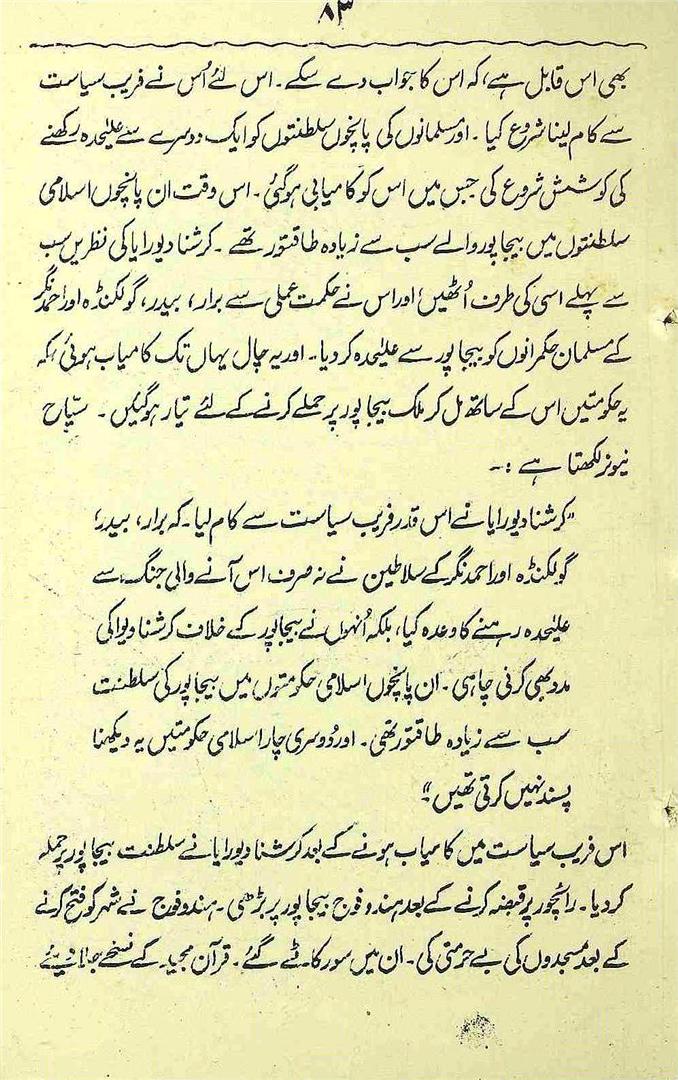 ۸۳
بھی اس قابل ہے، کہ اس کا جواب دے سکے۔ اس لئے اُس نے فریب سیاست
سے کام لینا شروع کیا۔ اور مسلمانوں کی پانچوں سلطنتوں کو ایک دوسرے سے علیٰحدہ رکھنے
کی کوشش شروع کی جس میں اس کو کامیابی ہوگئی۔ اس وقت ان پانچوں اسلامی
سلطنتوں میں بیجاپور والے سب سے زیادہ طاقتور تھے۔ کرشنا دیورایا کی نظریں سب
سے پہلے اسی کی طرف اُٹھیں اور اس نے حکمت عملی سے برار، بیدر، گولکنڈہ اور احمد نگر
کے مسلمان حکمرانوں کو بیجاپور سے علیٰحدہ کر دیا۔ اور یہ چال یہاں تک کامیاب ہوئی، کہ
یہ حکومتیں اس کے ساتھ مل کر ملک بیجاپور پر حملے کرنے کے لئے تیار ہوگئیں۔ سیّاح
نیونز لکھتا ہے :۔
"کرشنا دیورایا نے اس قدر فریب سیاست سے کام لیا۔ کہ برار، بیدر،
گولکنڈہ اور احمد نگر کے سلاطین نے نہ صرف اس آنے والی جنگ سے
علیٰحدہ رہنے کا وعدہ کیا، بلکہ اُنہوں نے بیجاپور کے خلاف کرشنا دیوا کی
مدد بھی کرنی چاہی۔ ان پانچوں اسلامی حکومتوں میں بیجاپور کی سلطنت
سب سے زیادہ طاقتور تھی۔ اور دُوسری چار اسلامی حکومتیں یہ دیکھنا
پسند نہیں کرتی تھیں۔"
اس فریب سیاست میں کامیاب ہونے کے بعد کرشنا دیورایا نے سلطنت بیجاپور پر حملہ
کر دیا۔ رائچور پر قبضہ کرنے کے بعد ہندو فوج بیجاپور پر بڑھی۔ ہندو فوج نے شہر کو فتح کرنے
کے بعد مسجدوں کی بے حرمتی کی۔ ان میں سور کاٹے گئے۔ قرآن مجید کے نسخے جلا دیئے